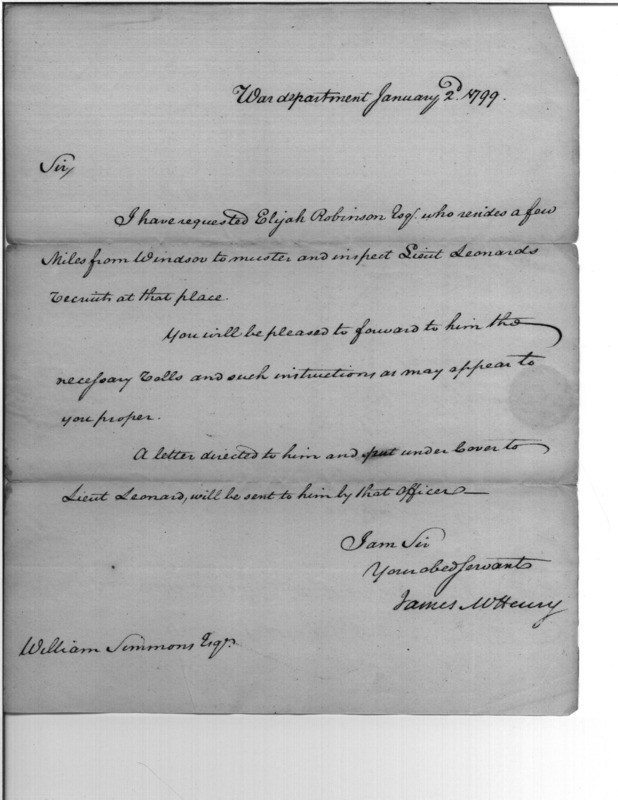 War department January 2d. 1799.
Sir,
I have requested Elijah Robinson Esqr. who resides a few
Miles from Windsor to muster and inspect Lieut Leonards
recruits at that place.
You will be pleased to forward to him the
necessary rolls and such instructions as may appear to
you proper.
A letter directed to him and put under Cover to
Lieut Leonard, will be sent to him by that Officer
I am Sir
Your obed servant
James McHenry
William Simmons Esqr.